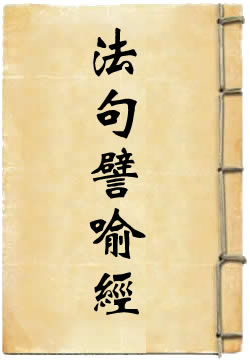 法句譬喻經